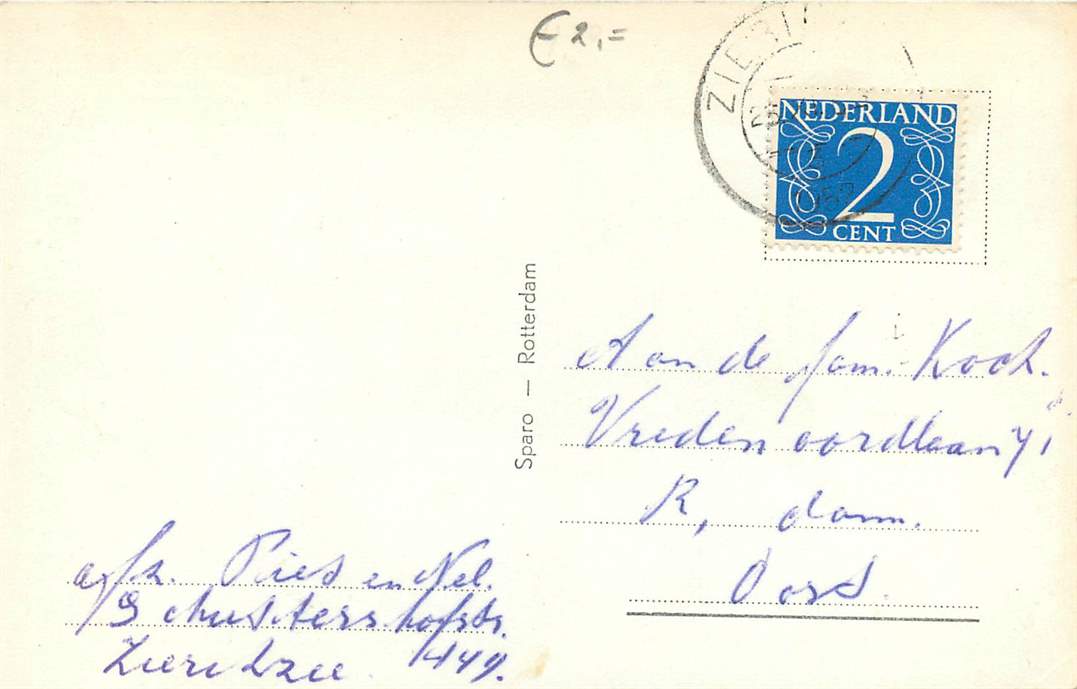 € 2,=
ZIERI
1952
NEDERLAND
2
CENT
Sparo — Rotterdam
Aan de fam. Koch.
Vredenoordlaan 71
R, dam.
Oost.
afz. Piet en Nel.
Schuttershofstr.
Zierikzee. 449.